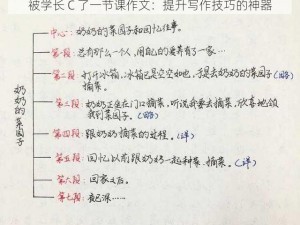 被学长C了一节课作文：提升写作技巧的神器
奶奶的菜园子
中心：奶奶的菜园子和回忆往事。
第一段：总有那么一个人，用自己的爱养育了一家…
第二段：打开冰箱，冰箱已是空空如也，于是去奶奶的菜园子（略）
第三段：奶奶正坐在门口摘菜，听说我要去摘菜，欣喜地领
我到菜园子。（略）
第四段：跟奶奶摘菜的过程。（详）
第五段：回忆以前跟奶奶一起种菜、摘菜。（详）
第六段：回家之后。
第七段：夜已深……